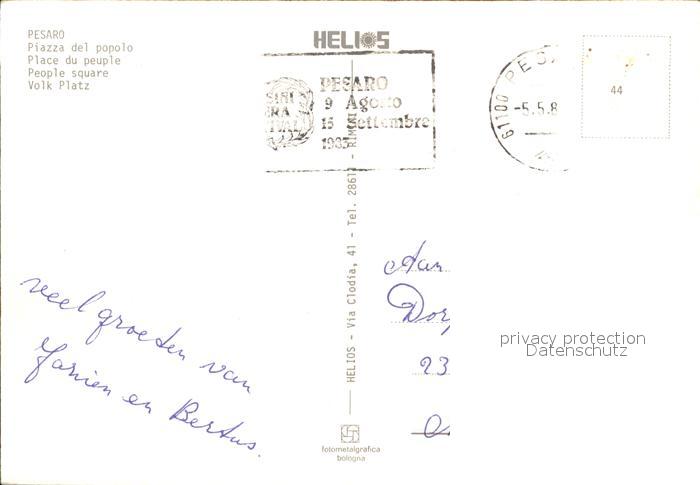 PESARO
Piazza del popolo
Place du peuple
People square
Volk Platz
HELIOS
PESARO
9 Agosto
15 Settembre
1983
61100 PESA
-5.5.8
44
HELIOS - Via Clodia, 41 - Tel. 28617 - RIMINI
veel groeten van
Janien en Bertus.
Aan
Dor
23
privacy protection
Datenschutz
fotometalgrafica
bologna